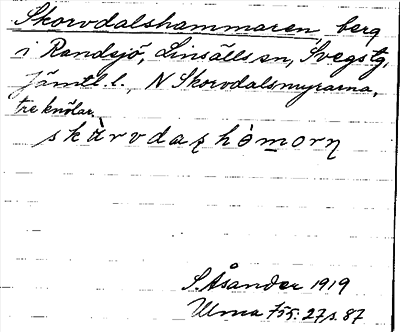 Skorvdalshammaren, berg
i Randsjö, Linsälls sn, Svegs tg,
Jämtl. l., N Skorvdalsmyrarna,
tre knölar.
S. Åsander 1919
Ulma 155:27 s. 87